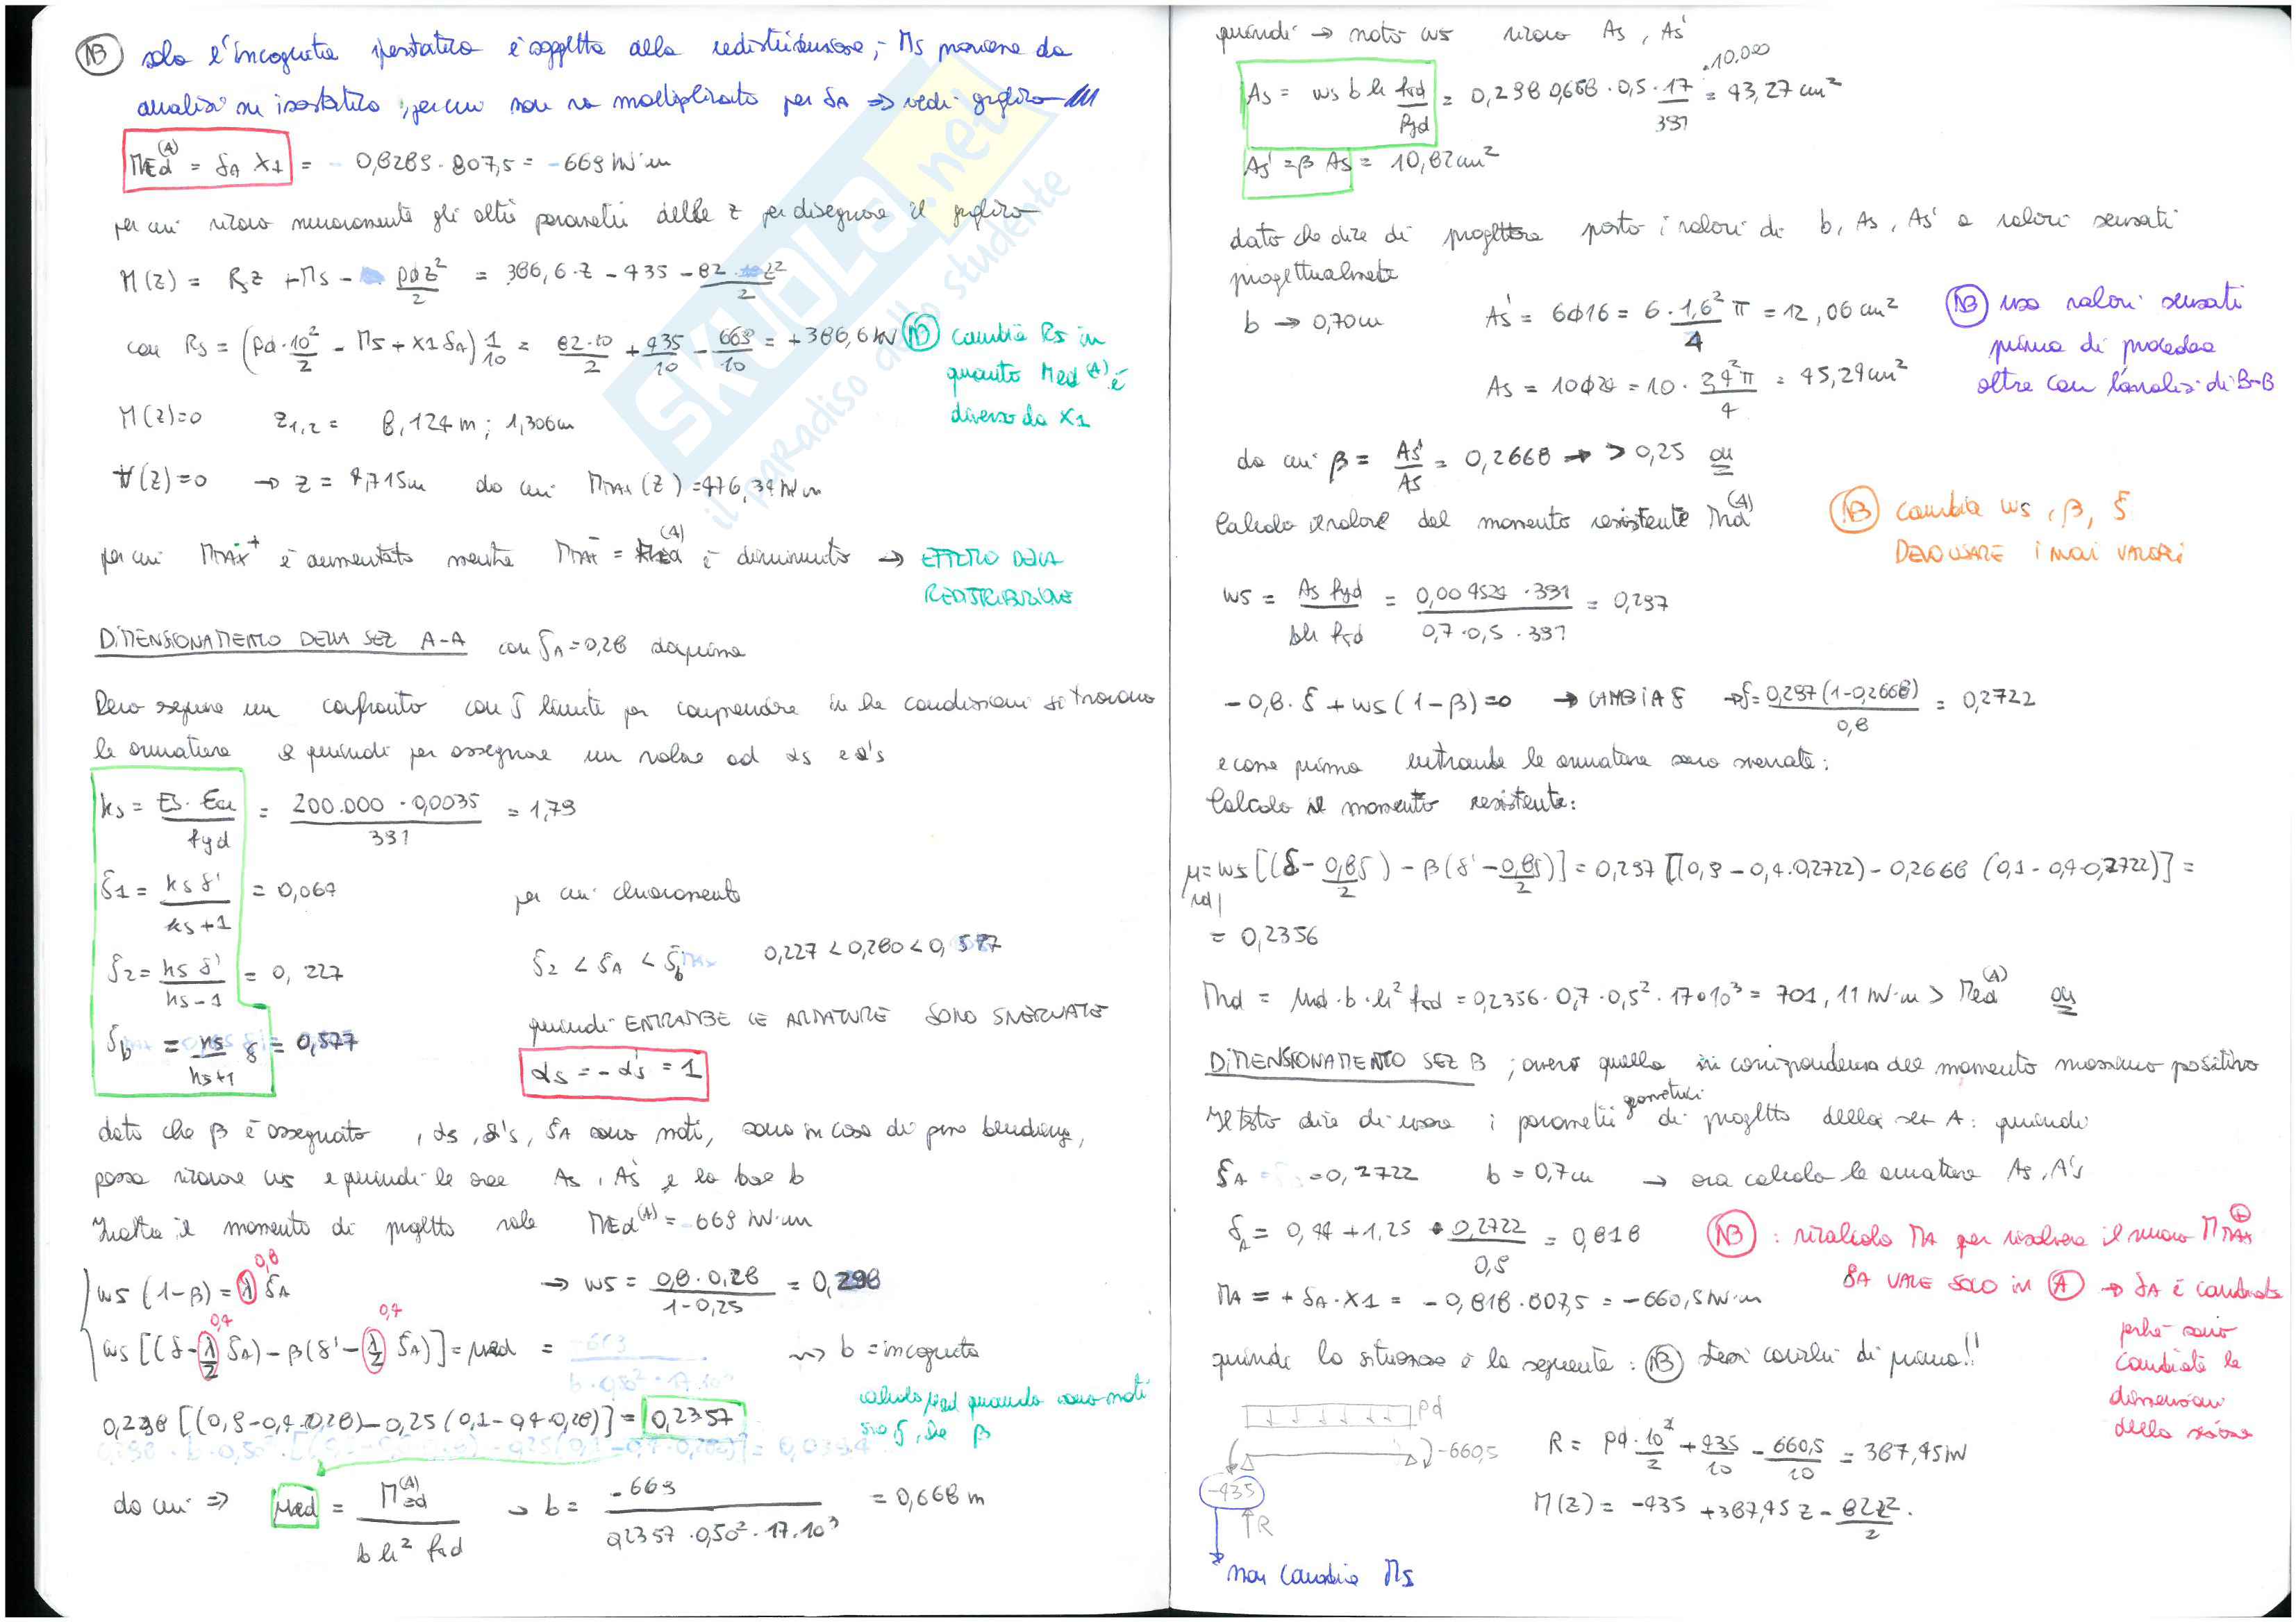 NB solo l'incognita iperstatica è soggetta alla redistribuzione; Ms proviene da
analisi su isostatica, per cui non va moltiplicato per δA ⇒ vedi grafico M
MEd(A) = δA X1 = - 0,8289 · 807,5 = -669 kN·m
per cui ricavo nuovamente gli altri parametri delle z per disegnare il grafico
M(z) = Rsz + Ms - pd z²/2 = 386,6·z - 435 - 82·z²/2
con Rs = (pd·10²/2 - Ms + X1 δA) 1/10 = 82·10/2 + 435/10 - 669/10 = +386,6 kN
NB cambia Rs in
quanto Med(A) è
diverso da X1
M(z)=0 z1,2 = 8,124 m ; 1,306m
V(z)=0 → z = 4,715m da cui Mmax(z) = 476,34 kNm
per cui MMAX+ è aumentato mentre MMAX- = MEd(A) è diminuito → EFFETTO DELLA
REDISTRIBUZIONE
DIMENSIONAMENTO DELLA SEZ A-A con ξA=0,28 da prima
Devo seguire un confronto con ξ limite per comprendere in che condizioni si trovano
le armature e quindi per assegnare un valore ad αs e α's
ks = Es·Ecu/fyd = 200.000 · 0,0035/391 = 1,79
ξ1 = ks δ'/ks+1 = 0,064 per cui chiaramente
ξ2 = ks δ'/ks-1 = 0,227 ξ2 < ξA < ξb 0,227 < 0,280 < 0,577
ξb = ks/ks+1 δ = 0,577 quindi ENTRAMBE LE ARMATURE SONO SNERVATE
αs = -α's = 1
dato che β è assegnato, αs, α's, ξA sono noti, sono in caso di pure bending,
posso ricavare ws e quindi le aree As, A's e la base b
Inoltre il momento di progetto vale MEd(A) = -669 kN·m
ws (1-β) = λ ξA 0,8 → ws = 0,8·0,28/1-0,25 = 0,298
ws [(δ - λ/2 ξA) - β(δ' - λ/2 ξA)] = μed = 0,4 0,4 → b = incognita
0,298 [(0,9-0,4·0,28) - 0,25 (0,1-0,4·0,28)] = 0,2357
calcolo μed quando sono noti
sia ξ, che β
da cui ⇒ μed = MEd(A)/b h² fcd → b = -669/0,2357·0,50²·17·10³ = 0,668 m
quindi → noto ws ricavo As, As'
As = ws b h fcd/fyd = 0,298 0,668 · 0,5 · 17/391 ·10.000 = 43,27 cm²
As' = β As = 10,82 cm²
dato che dice di progettare porto i valori di b, As, As' a valori sensati
progettualmente
b → 0,70m As' = 6Φ16 = 6·1,6²/4 π = 12,06 cm²
NB uso valori sensati
prima di procedere
oltre con l'analisi di B-B
As = 10Φ24 = 10 · 2,4²π/4 = 45,24cm²
da cui β = As'/As = 0,2668 → > 0,25 ok
Calcolo il valore del momento resistente Mrd(A)
NB cambia ws, β, ξ
DEVO USARE I NUOVI VALORI
ws = As fyd/bh fcd = 0,004524 · 391/0,7·0,5·391 = 0,297
-0,8·ξ + ws (1-β)=0 → CAMBIA ξ → ξ = 0,297(1-0,2668)/0,8 = 0,2722
e come prima entrambe le armature sono snervate:
Calcolo il momento resistente:
μrd = ws [(δ - 0,8ξ/2) - β(δ' - 0,8ξ/2)] = 0,297 [(0,9 - 0,4·0,2722) - 0,2668 (0,1 - 0,4·0,2722)] =
= 0,2356
Mrd = μrd · b · h² fcd = 0,2356 · 0,7 · 0,5² · 17·10³ = 701,11 kN·m > Med(A) ok
DIMENSIONAMENTO SEZ B ; ovvero quella in corrispondenza del momento massimo positivo
Il testo dice di usare i parametri geometrici di progetto della sez A: quindi
ξA = 0,2722 b = 0,7m → ora calcolo le armature As, A's
δA = 0,44 + 1,25 · 0,2722/0,9 = 0,818
NB : ricalcolo MA per risolvere il nuovo MMAX+
δA VALE SOLO IN A → δA è cambiato
perché sono
cambiate le
dimensioni
della sezione
MA = + δA · X1 = - 0,818 · 807,5 = -660,5 kN·m
quindi la situazione è la seguente : NB stessi carichi di prima!!
pd
-660,5
-435
R
R = pd·10²/2 + 435/10 - 660,5/10 = 387,45 kN
M(z) = -435 + 387,45 z - 82z²/2.
non cambia Ms
SKUOLA.net
il paradiso dello studente